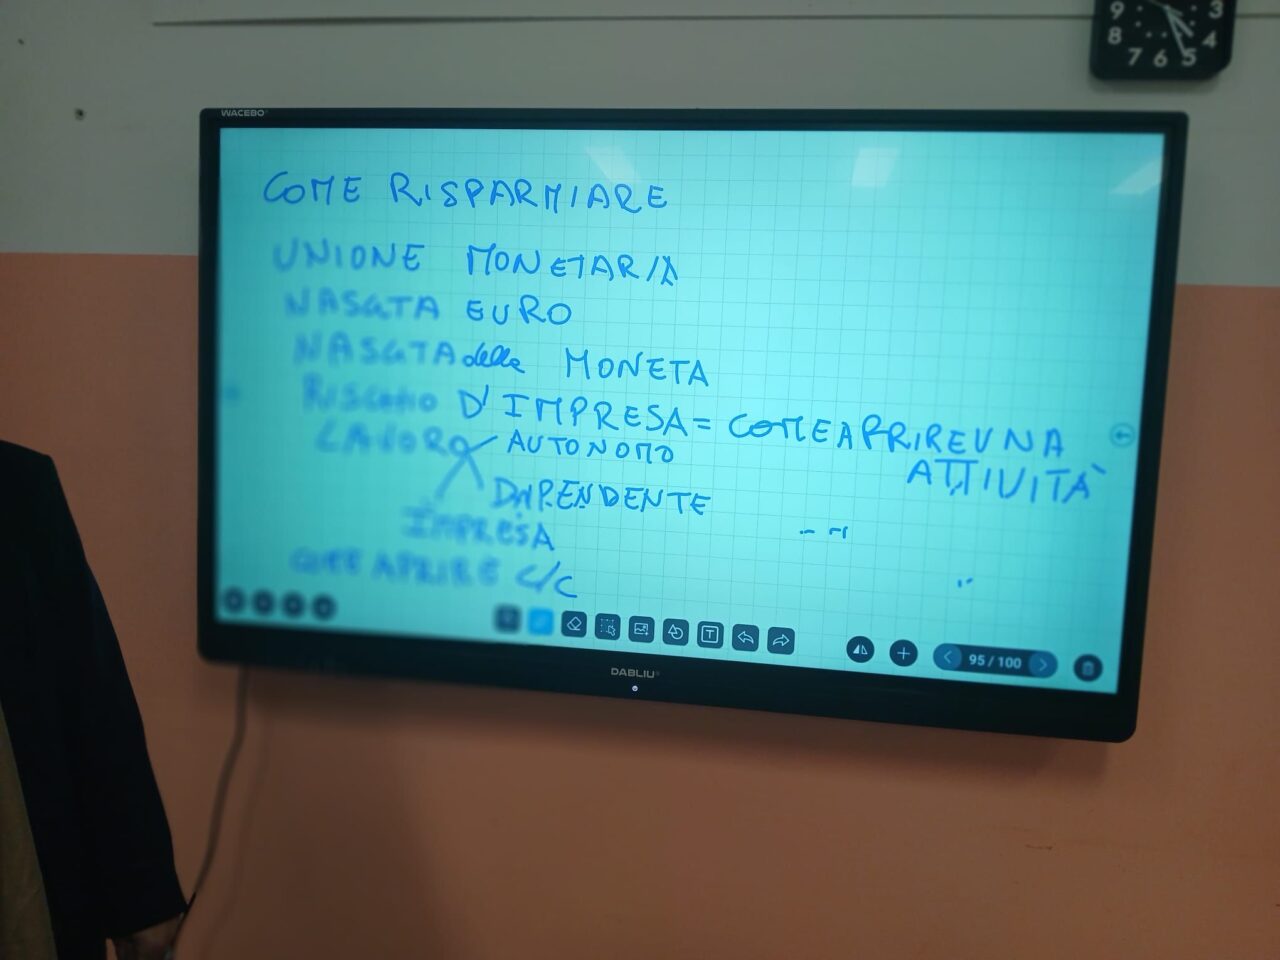 9 3
8 4
7 6 5
WACEBO
COME RISPARMIARE
UNIONE MONETARIA
NASCITA EURO
NASCITA della MONETA
RISCHIO D'IMPRESA = COME APRIRE UNA
ATTIVITÀ
LAVORO AUTONOMO
DIPENDENTE
IMPRESA
COME APRIRE C/C
T
95 / 100
DABLIU